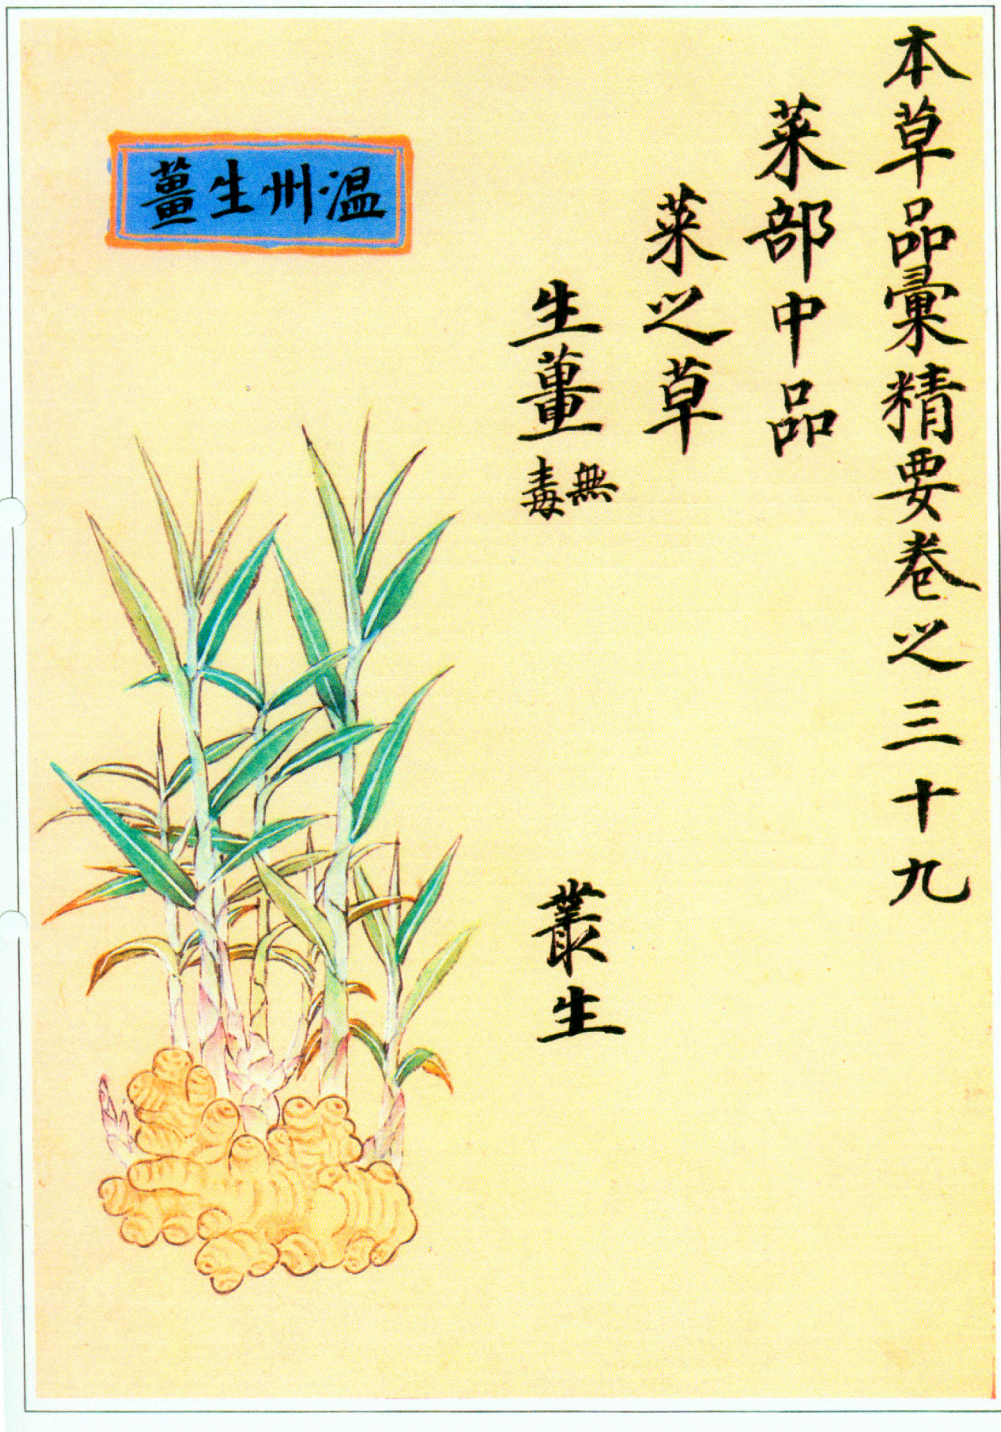 本草品彙精要卷之三十九
菜部中品
菜之草
生薑無毒
叢生
温州生薑